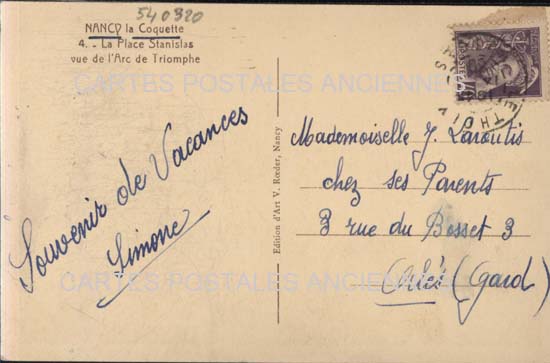 540320
NANCY la Coquette
4. - La Place Stanislas
vue de l'Arc de Triomphe
CARTES POSTALES ANCIENNES
Souvenir de Vacances
Simone
Edition d'Art V. Rœder, Nancy
Mademoiselle J. Laroutis
chez ses Parents
3 rue du Bosset 3
(Gard)
CARTES POSTALES ANCIENNES